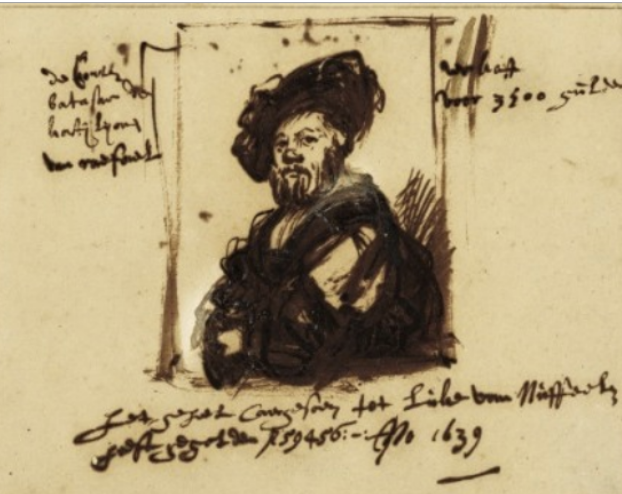 de Conte
batasar de
kastijlijone
van raefael
verkoft
voor 3500 gulde
het geheel caergesoen tot Luke van Nuffeelen
heeft gegolden f 59456:- Ano 1639